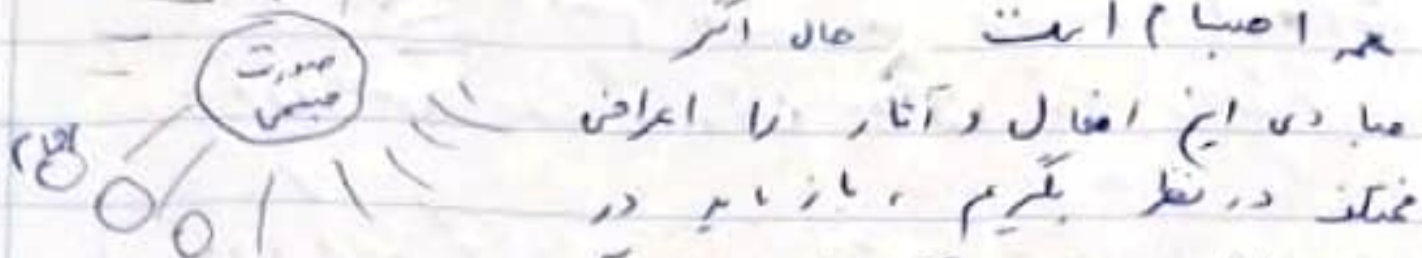 همه اجسام است حال اگر
مبادی این افعال و آثار را اعراض
مختلف در نظر بگیریم ، باز باید در
صورت
جسمی